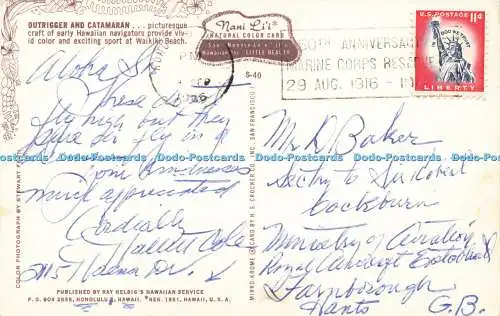 OUTRIGGER AND CATAMARAN . . . picturesque
craft of early Hawaiian navigators provide viv-
id color and exciting sport at Waikiki Beach.
Nani Li'i
NATURAL COLOR CARD
S-40
50TH ANNIVERSARY
MARINE CORPS RESERVE
29 AUG. 1916 - 1
U.S. POSTAGE 11¢
IN GOD WE TRUST
LIBERTY
Aloha Sir
These don't
fly high but they
sure do fly in a
Your kindness
much appreciated
Cordially
2115 Haena Dr.
Mr D. Baker
Sectry to Sir Robert
Cockburn
Ministry of Aviation
Royal Aircraft Establishment
Farnborough
Hants G.B.
Dodo-Postcards Dodo-Postcards Dodo-Postcards Dodo-Postcards Dodo-Postcards
COLOR PHOTOGRAPH BY STEWART
MIRRO-KROME CARD BY H. S. CROCKER CO., INC. SAN FRANCISCO
PUBLISHED BY RAY HELBIG'S HAWAIIAN SERVICE
P. O. BOX 2835, HONOLULU, HAWAII. REG. 1951, HAWAII, U.S.A.